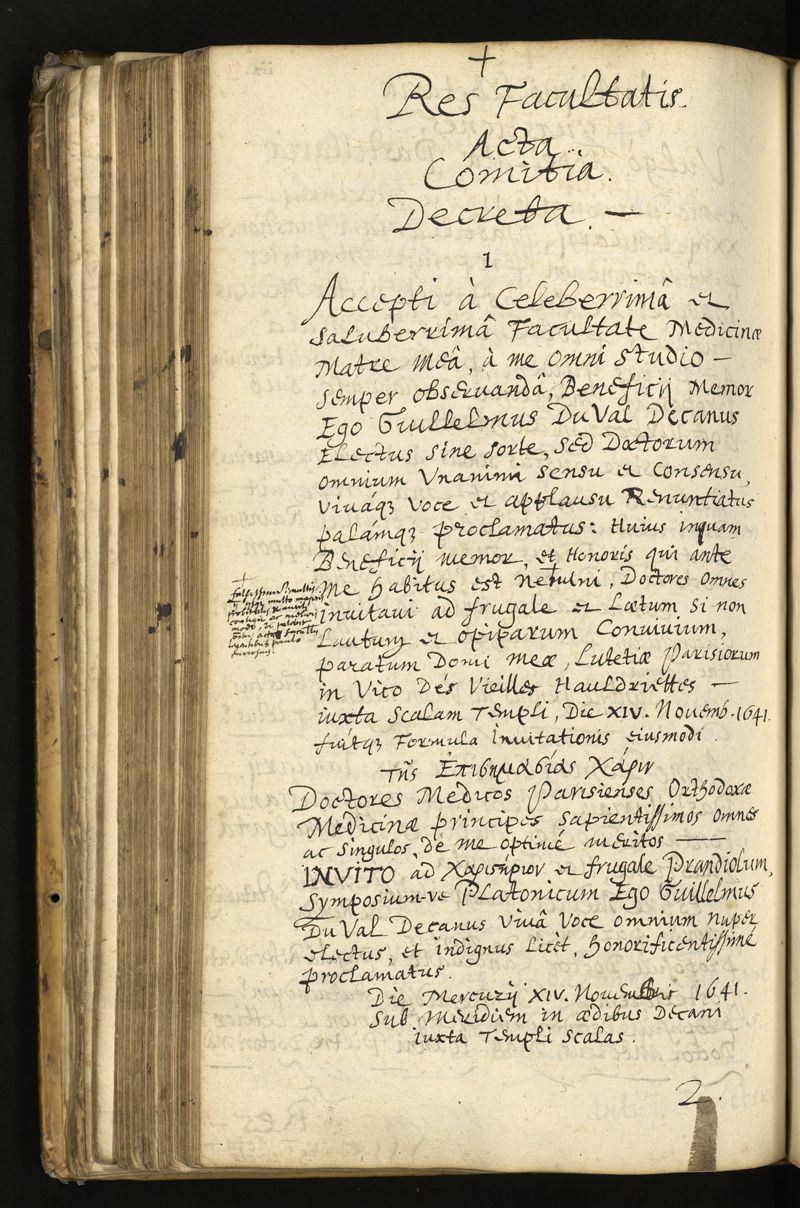 +
Res Facultatis.
Acta
Comitia.
Decreta. —
1
Accepti à Celeberrimâ et
saluberrimâ Facultate Medicinæ
Matre meâ, à me omni studio —
semper observandâ, Beneficij Memor
Ego Guillelmus DuVal Decanus
Electus sine sorte, sed Doctorum
omnium Vnanimi sensu et Consensu,
viváqȝ voce et applausu Renuntiatus
palámqȝ proclamatus: Huius inquam
Beneficij memor, et Honoris qui ante
me habitus est nemini, Doctores omnes
invitaui ad frugale et Lætum si non
Lautum et opiparum Convivium,
paratum Domi meæ, Lutetiæ Parisiorum
in Vico Dés Vieilles Hauldriettes —
iuxta Scalam Templi, Die XIV. Novemb. 1641.
fuítqȝ Formula Invitationis eiusmodi.
Τῆς Ἐπιδημασίας Χάριν
Doctores Medicos Parisienses Orthodoxæ
Medicinæ principes sapientissimos omnes
ac singulos, de me optimé meritos —
INVITO ad Χαριστήριον et frugale Prandiolum,
Symposium-ve Platonicum Ego Guillelmus
DuVal Decanus vivâ voce omnium nuper
electus, et indignus licèt, honorificentissimé
proclamatus.
Die Mercurij XIV. Novembris 1641.
Sub Meridiem in ædibus Decani
iuxta Templi Scalas.
2.